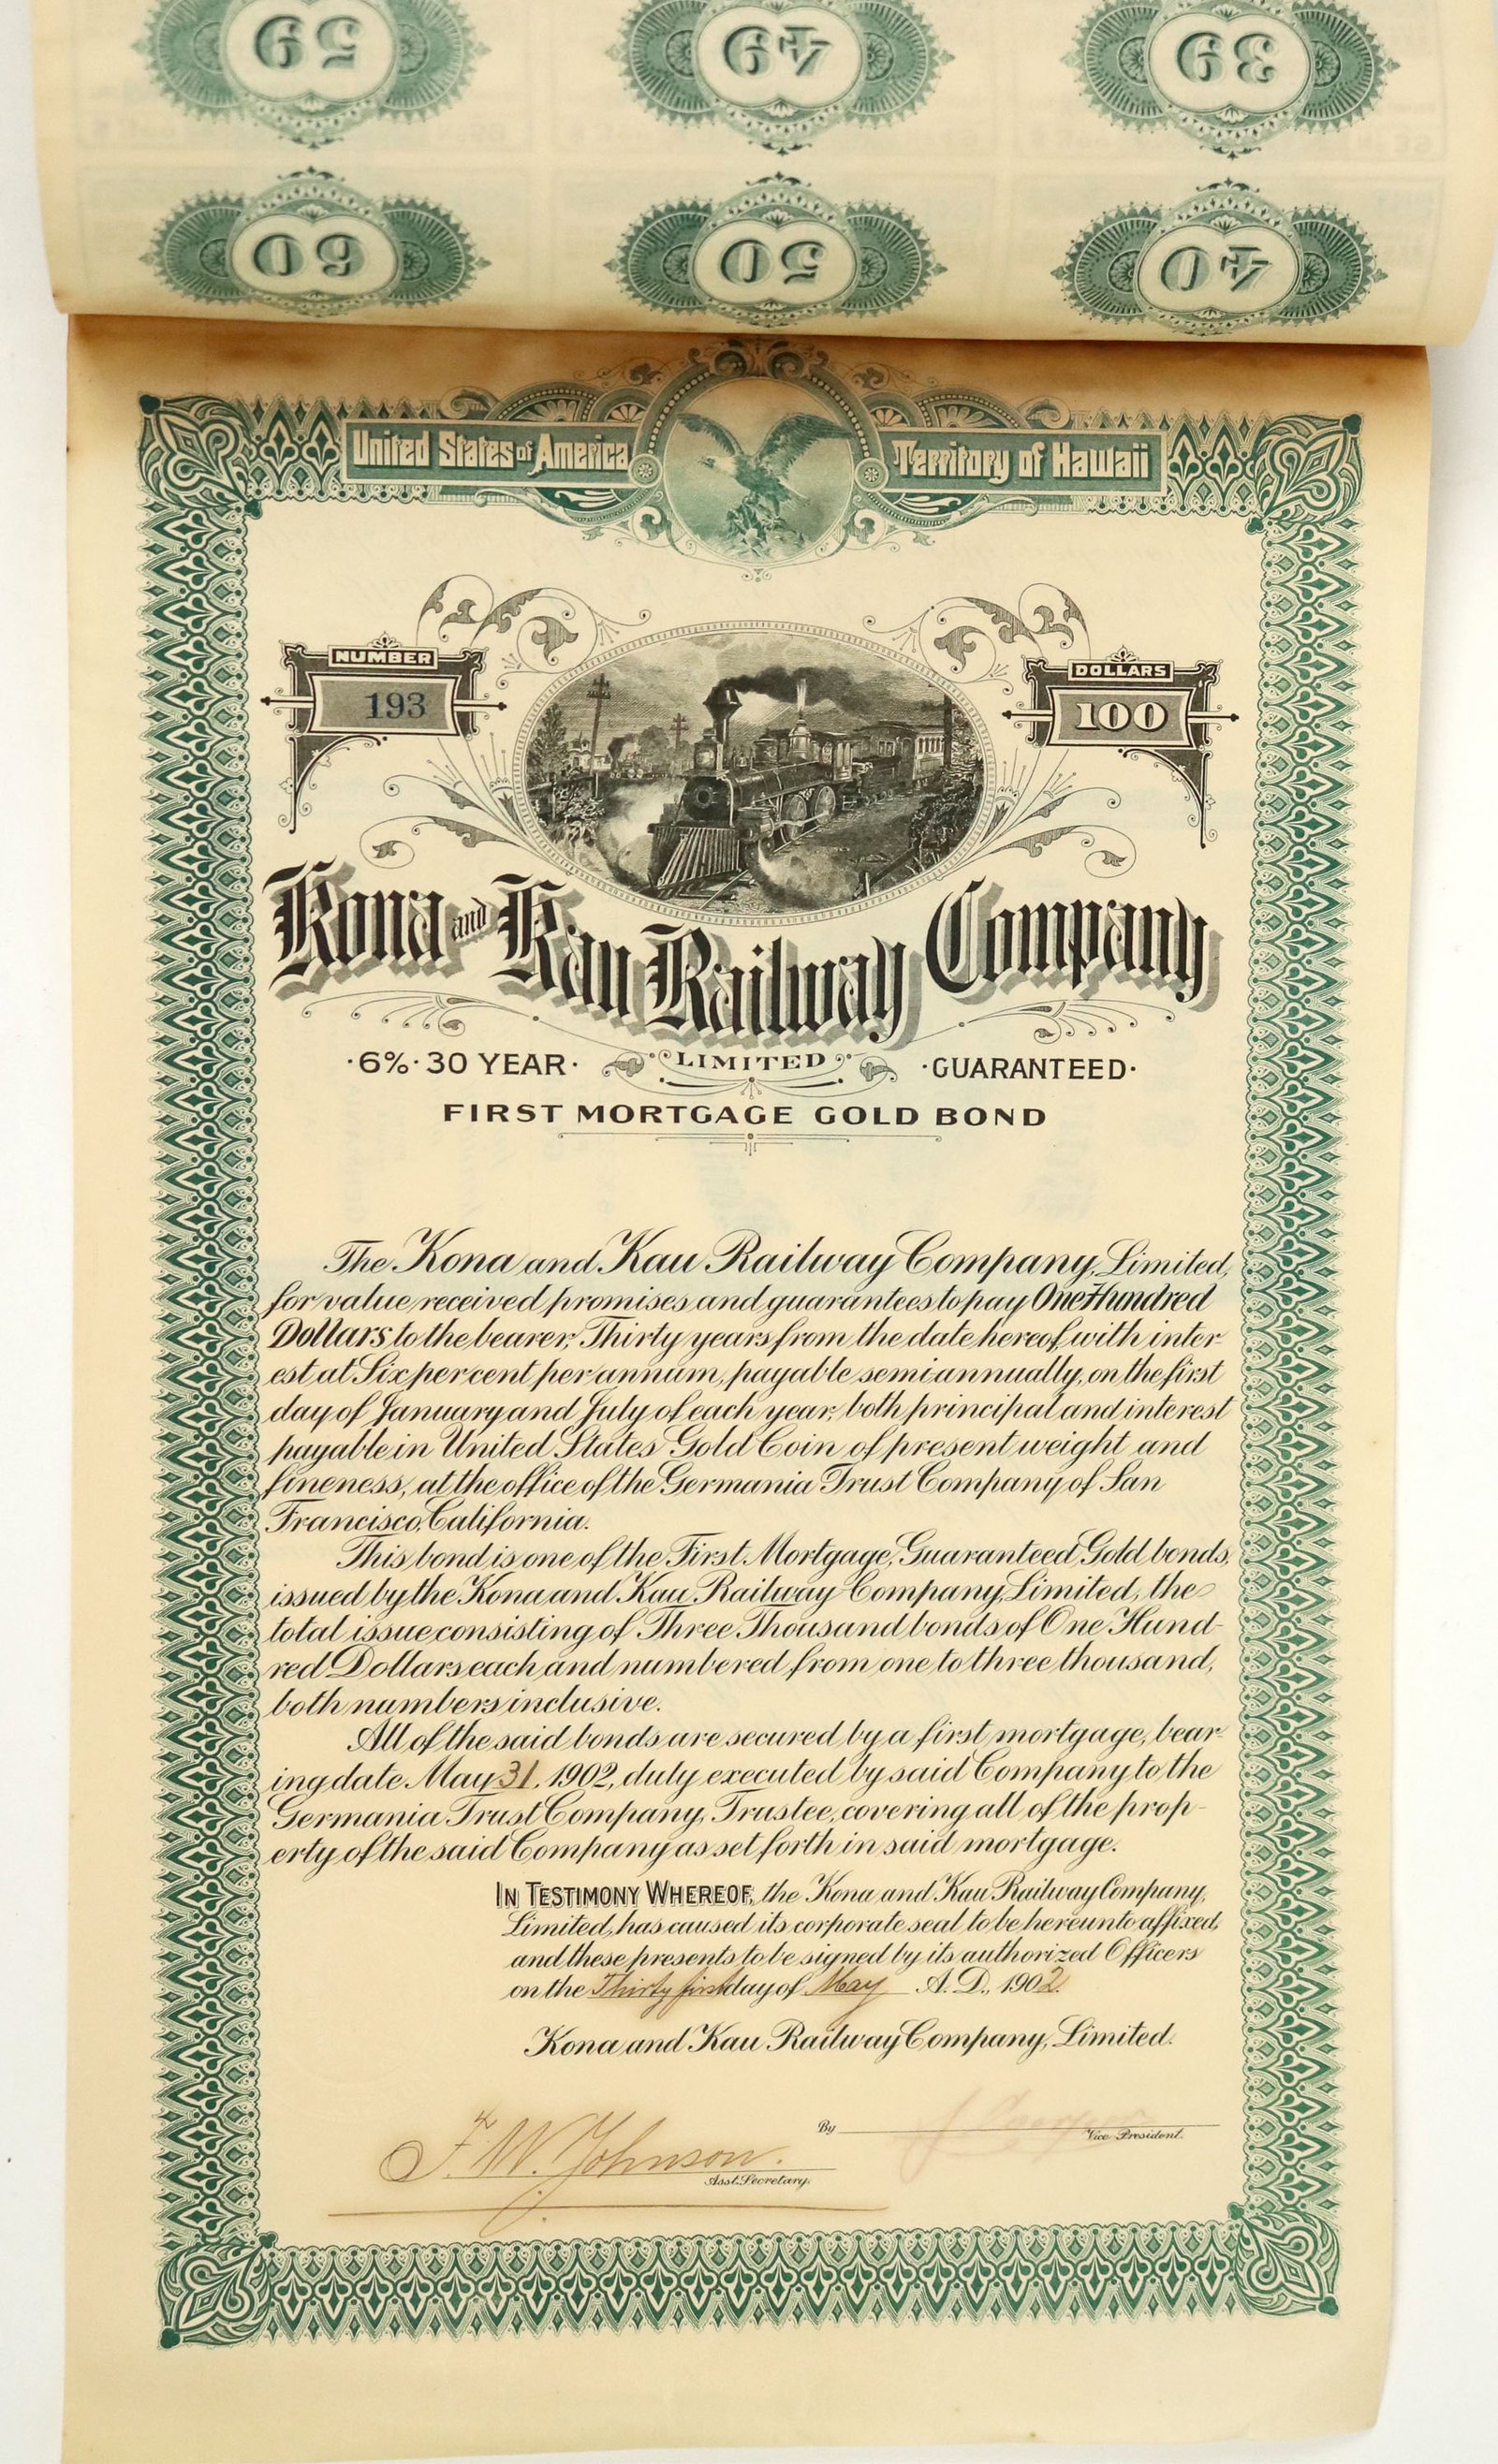 59 49 39
60 50 40
United States of America Territory of Hawaii
NUMBER
193
DOLLARS
100
Kona and Kau Railway Company
·6%·30 YEAR· LIMITED ·GUARANTEED·
FIRST MORTGAGE GOLD BOND
The Kona and Kau Railway Company, Limited,
for value received promises and guarantees to pay One Hundred
Dollars to the bearer, Thirty years from the date hereof, with inter-
est at Six per cent per annum, payable semiannually, on the first
day of January and July of each year, both principal and interest
payable in United States Gold Coin of present weight and
fineness, at the office of the Germania Trust Company of San
Francisco, California.
This bond is one of the First Mortgage, Guaranteed Gold bonds,
issued by the Kona and Kau Railway Company, Limited, the
total issue consisting of Three Thousand bonds of One Hund-
red Dollars each and numbered from one to three thousand,
both numbers inclusive.
All of the said bonds are secured by a first mortgage, bear-
ing date May 31, 1902, duly executed by said Company to the
Germania Trust Company, Trustee, covering all of the prop-
erty of the said Company as set forth in said mortgage.
IN TESTIMONY WHEREOF, the Kona and Kau Railway Company,
Limited, has caused its corporate seal to be hereunto affixed,
and these presents to be signed by its authorized Officers
on the Thirty first day of May A.D., 1902.
Kona and Kau Railway Company, Limited.
By
Vice President.
F. W. Johnson.
Asst. Secretary.